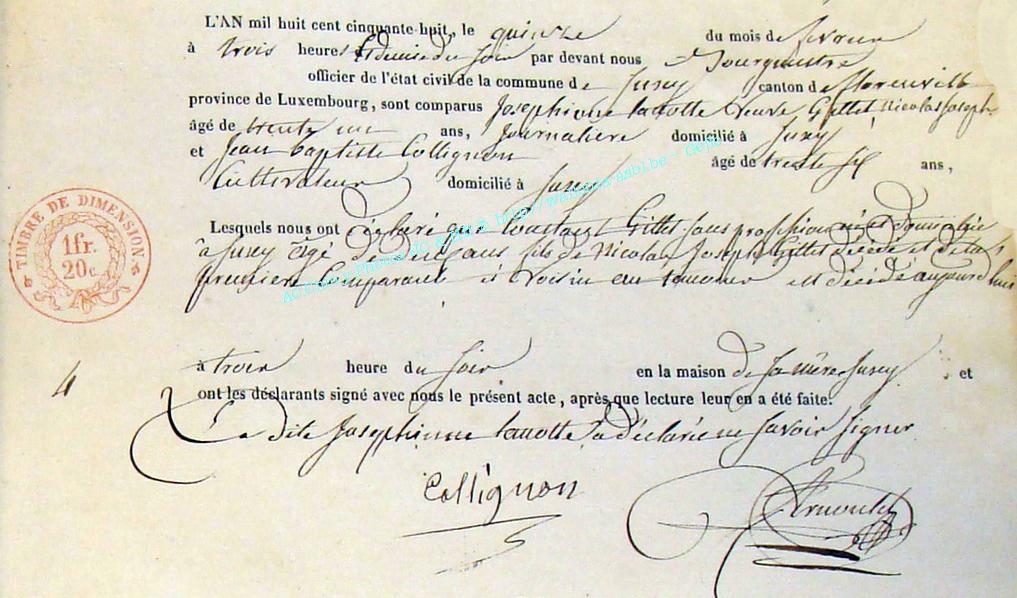 L'AN mil huit cent cinquante-huit, le quinze du mois de fevrier
à trois heures et demie du soir par devant nous Bourgmestre
officier de l'état civil de la commune de Jusey canton de florenville
province de Luxembourg, sont comparus Josephinne lanotte Veuve Gillet, Nicolas Joseph
âgé de trente un ans, Journalière domicilié à Jusey
et Jean baptiste Collignon âgé de trente six ans,
Cultivateur domicilié à Jusey
Lesquels nous ont déclaré que Constant Gillet sans profession né et domicilié
à Jusey âgé de ans fils de Nicolas Joseph Gillet décédé et de la
première Comparante et voisin est décédé aujourd'hui
à trois heure du soir en la maison de sa mère Jusey et
ont les déclarants signé avec nous le présent acte, après que lecture leur en a été faite:
La dite Josephinne lanotte a déclaré ne savoir signer
Collignon
TIMBRE DE DIMENSION
1 fr.
20 c.
4
http://wallonia-asbl.be - Gepp